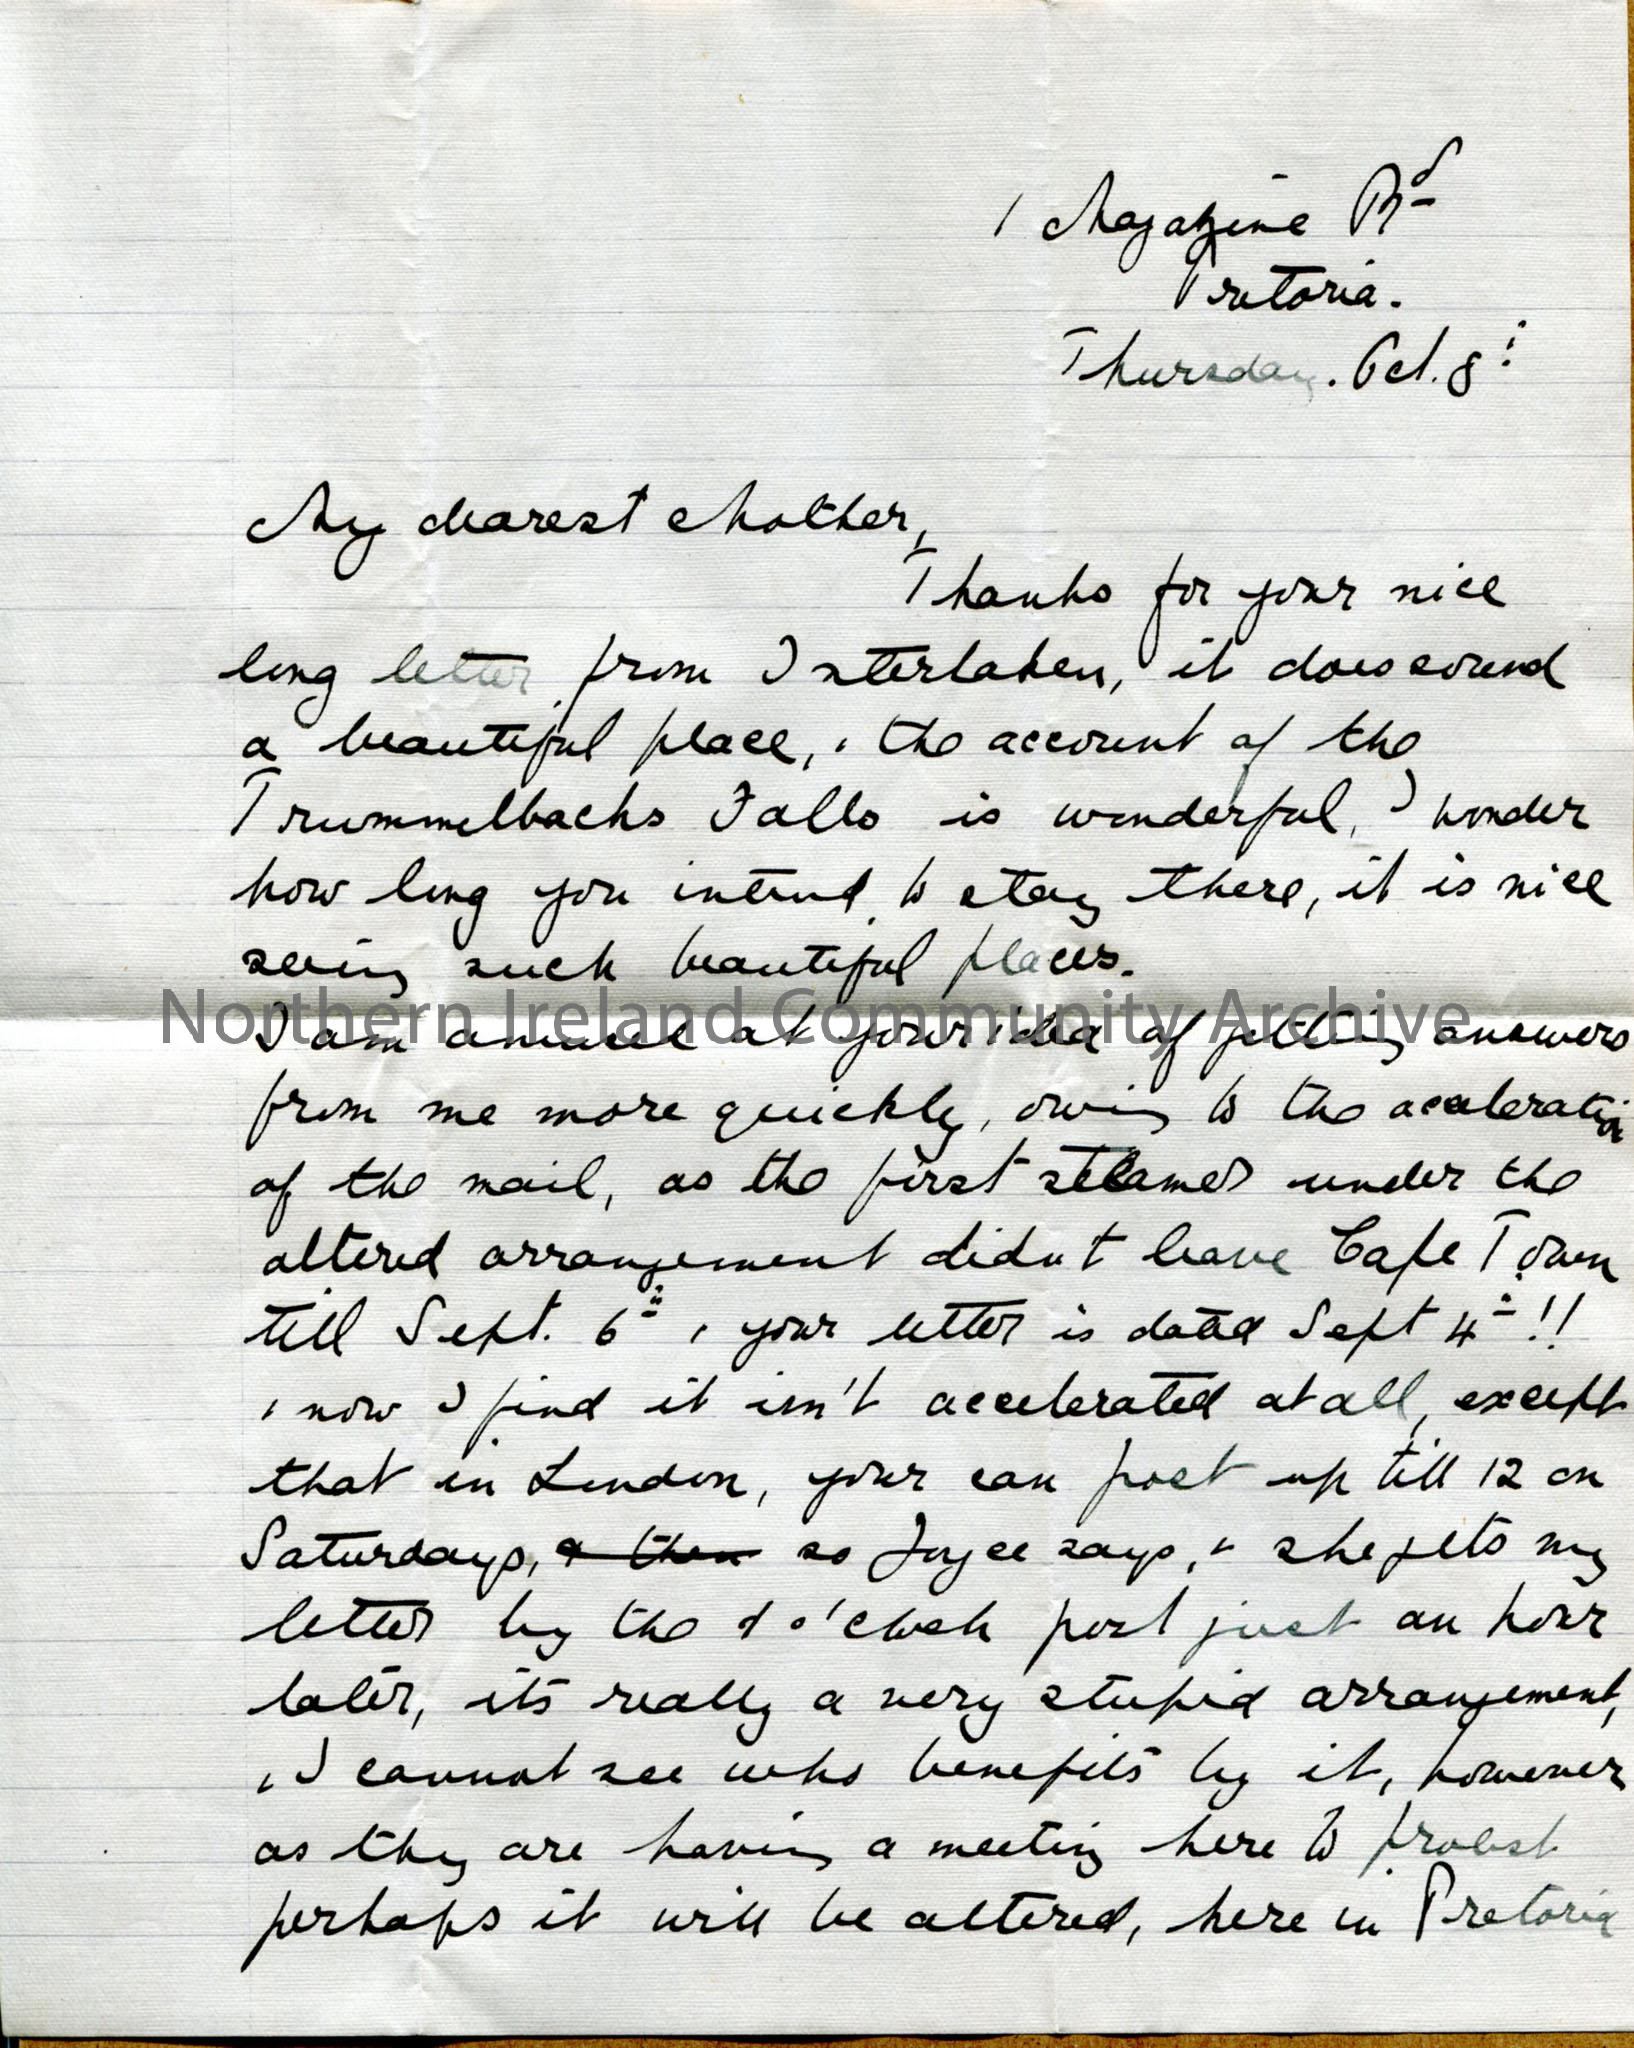 1 Magazine Rd
Pretoria.
Thursday. Oct. 8th
My dearest Mother,
Thanks for your nice
long letter from Interlaken, it does sound
a beautiful place, & the account of the
Trummelbachs Falls is wonderful, I wonder
how long you intend to stay there, it is nice
seeing such beautiful places.
Northern Ireland Community Archive
I am amused at your idea of getting answers
from me more quickly, owing to the acceleration
of the mail, as the first steamer under the
altered arrangement didn't leave Cape Town
till Sept. 6th, & your letter is dated Sept 4th!!
& now I find it isn't accelerated at all, except
that in London, your can post up till 12 on
Saturdays, & then so Joyce says, & she gets my
letter by the 1 o'clock post just an hour
later, it's really a very stupid arrangement,
& I cannot see who benefits by it, however
as they are having a meeting here to protest
perhaps it will be altered, here in Pretoria